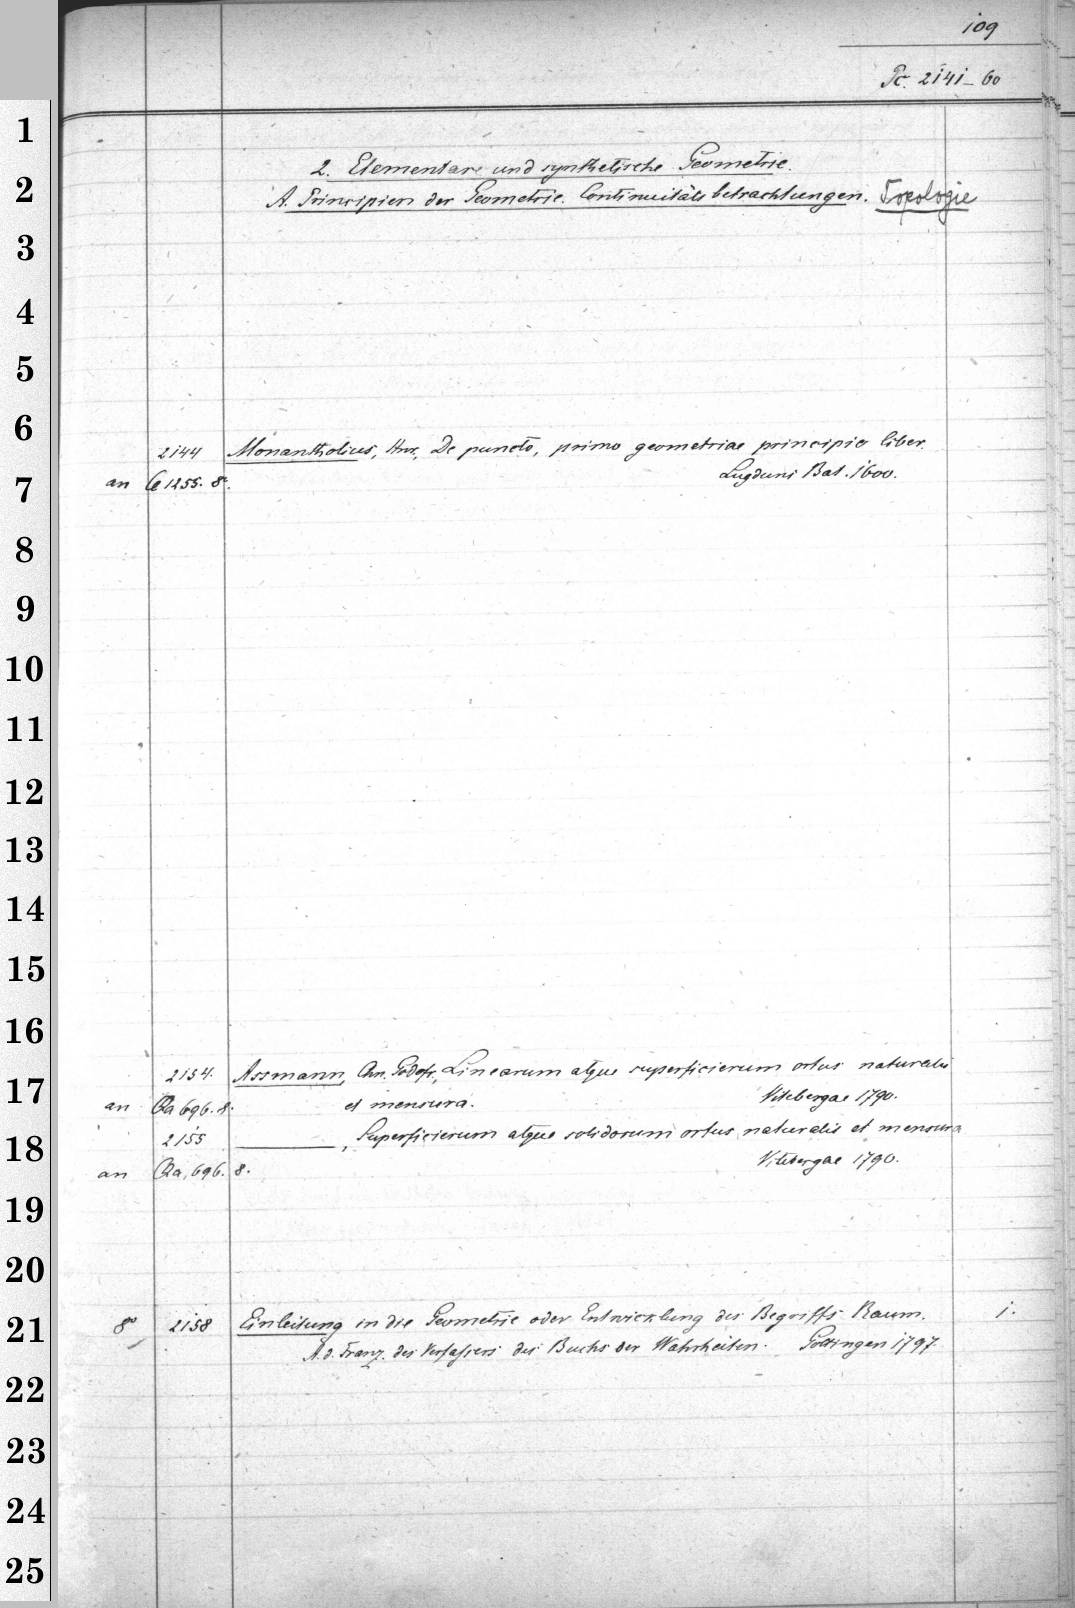 109
Pc. 2141-60
2. Elementare und synthetische Geometrie.
A. Principien der Geometrie. Continuitätsbetrachtungen. Topologie
2144 Monantholius, Hnr., De puncto, primo geometriae principio liber.
an Ce 1255. 8°. Lugduni Bat. 1600.
2154. Assmann, Chn. Godofr., Linearum atque superficierum ortus naturalis
an Qa 696. 8. et mensura. Vitebergae 1790.
2155 ———, Superficierum atque solidorum ortus naturalis et mensura
an Qa, 696. 8. Vitebergae 1790.
8° 2158 Einleitung in die Geometrie oder Entwicklung des Begriffs Raum. 1.
A. d. Franz. des Verfassers des Buchs der Wahrheiten. Göttingen 1797.
1
2
3
4
5
6
7
8
9
10
11
12
13
14
15
16
17
18
19
20
21
22
23
24
25